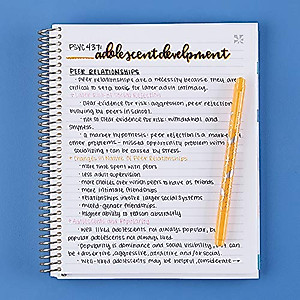 PSYC 437:
adolescent develpment
PEER RELATIONSHIPS
• Peer relationships are a necessity because they are
critical to setting basis for later adult intimacy.
• Later Risk of Social Rejection
• clear evidence for risk: aggression, peer rejection
bullying by peers in school.
• not so clear evidence for risk: withdrawal and
shyness.
• a marker hypothesis: peer rejection is a marker
other problems - missed opportunity problem with
socializing + can be caused by stress.
• Changes in Nature of Peer Relationships
• more time spent with peers
• less adult supervision
• more choices over which peers to have as friends
• more intimate friendships
• relationships involve larger social systems
• mixed-gender friendships
• higher ability to reason abstractly
• Adolescents and Popularity
• well liked adolescents not always popular, but
popular adolescents not always liked.
• popularity is dominance and social visibility, but can
be assertive, aggressive, attractive and/or social.
• well-liked adolescents may be helpful, considerate --